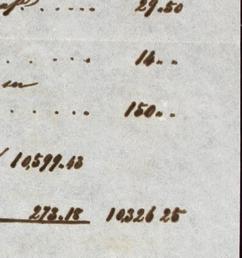 . . . . . 29.50
. . . . . 14 . .
. . . . . 150 . .
10,599.43
273.18 10326 25